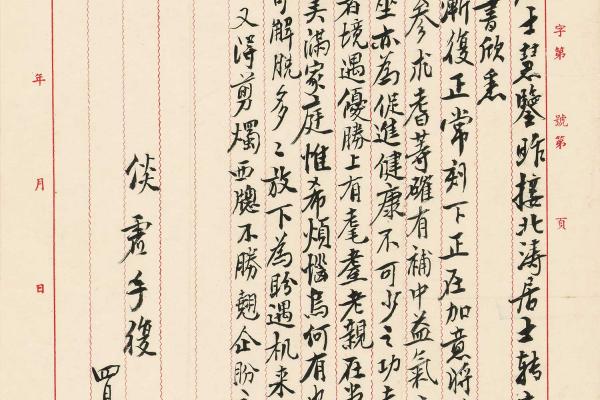 字第 號第 頁
士慧鑒昨接北濤居士转
書欣悉
漸復正常刻下正在加意將
参朮耆苓確有補中益氣
坐亦為促進健康不可少之功
者境遇優勝上有耄耋老親在
美满家庭惟希煩惱烏何有
可解脱多〻放下為盼遇机来
又得剪燭西牕不勝翹企盼
倓虚手復
四月
年 月 日